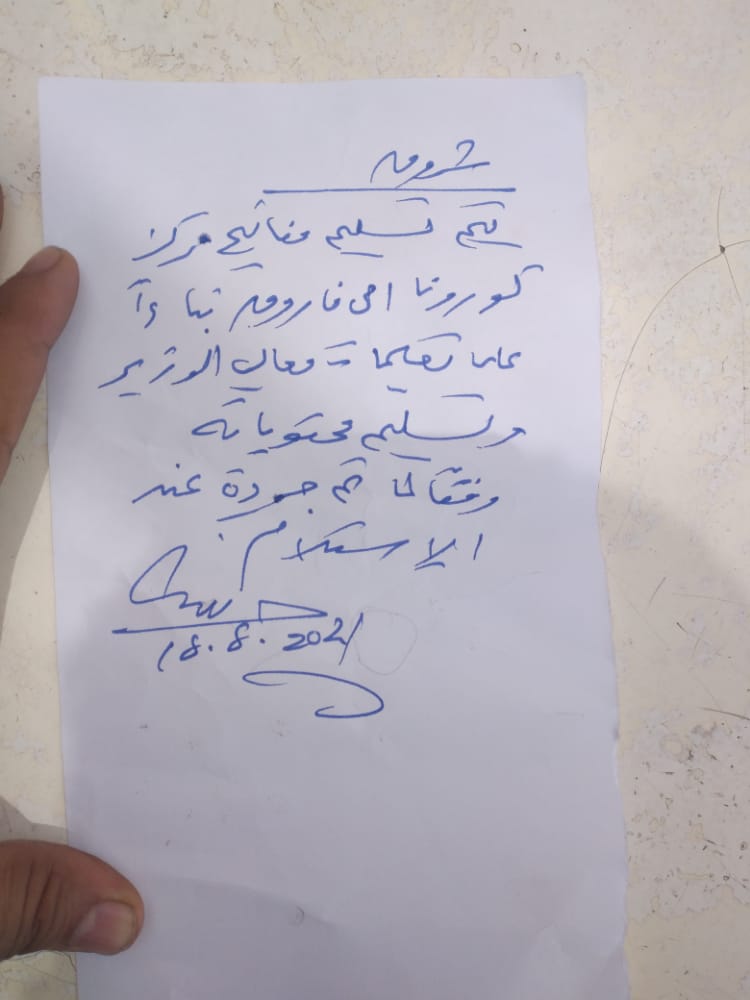 شروق
يتم تسليم مفاتيح مركز
كورونا الى فاروق بناءآ
على تعليمات معالي الوزير
وتسليم محتوياته
وفقا لما تم جرده عند
الإستلام.
18.8.2021